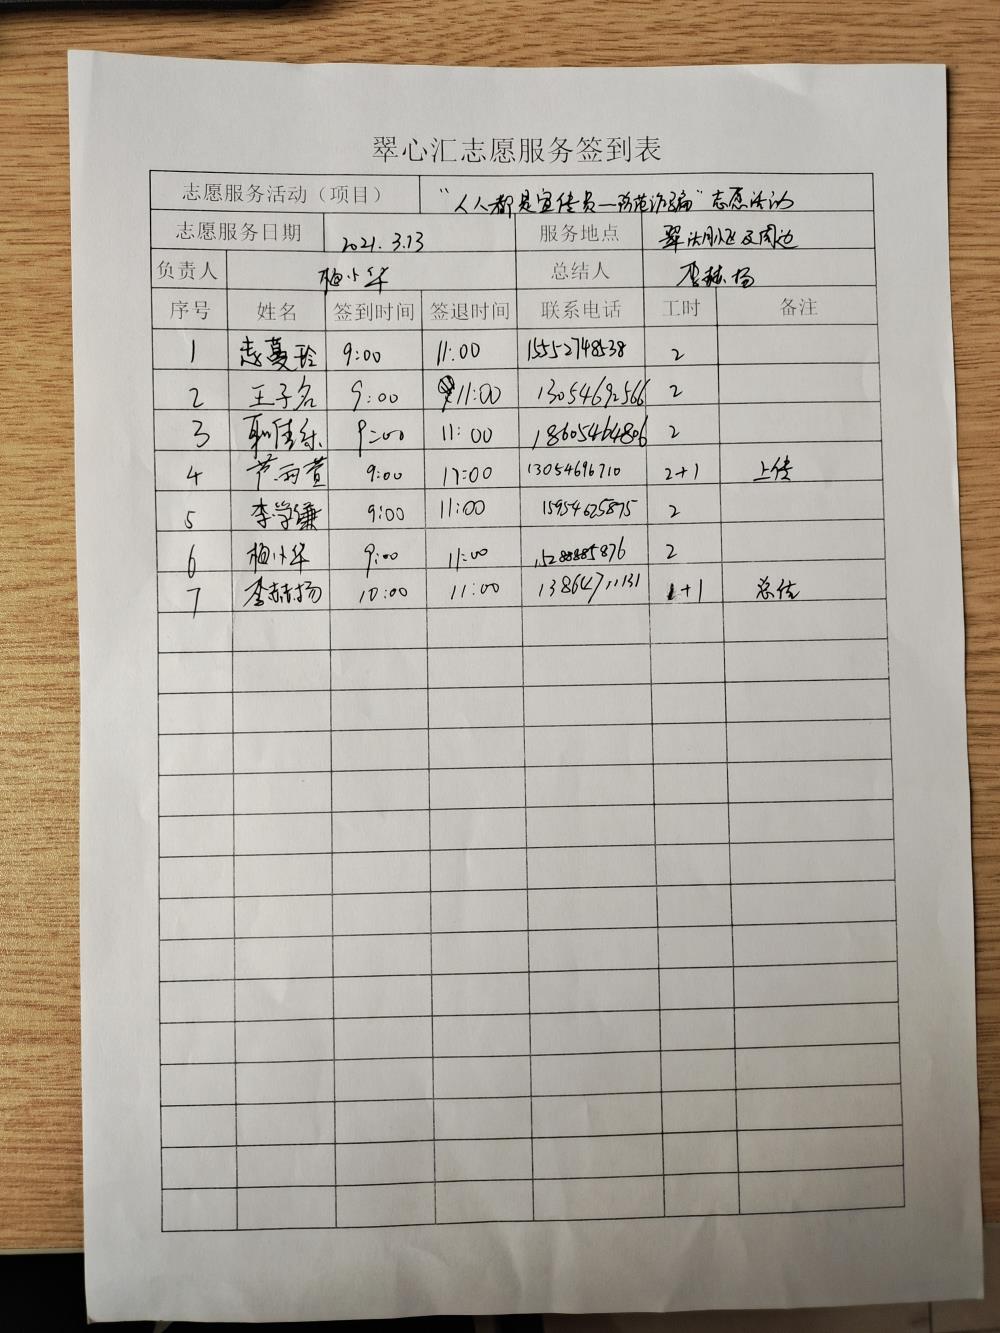 翠心汇志愿服务签到表
志愿服务活动（项目） “人人都是宣传员—防范诈骗”志愿活动
志愿服务日期 2021.3.13 服务地点 及周边
负责人 梅小华 总结人 李赫扬
序号 姓名 签到时间 签退时间 联系电话 工时 备注
1 9:00 11:00 15552748538 2
2 王子名 9:00 11:00 13054692566 2
3 9:00 11:00 18605464806 2
4 芦雨萱 9:00 11:00 13054696710 2+1 上传
5 李学谦 9:00 11:00 15954625875 2
6 梅小华 9:00 11:00 15288885876 2
7 李赫扬 10:00 11:00 13864711131 1+1 总结